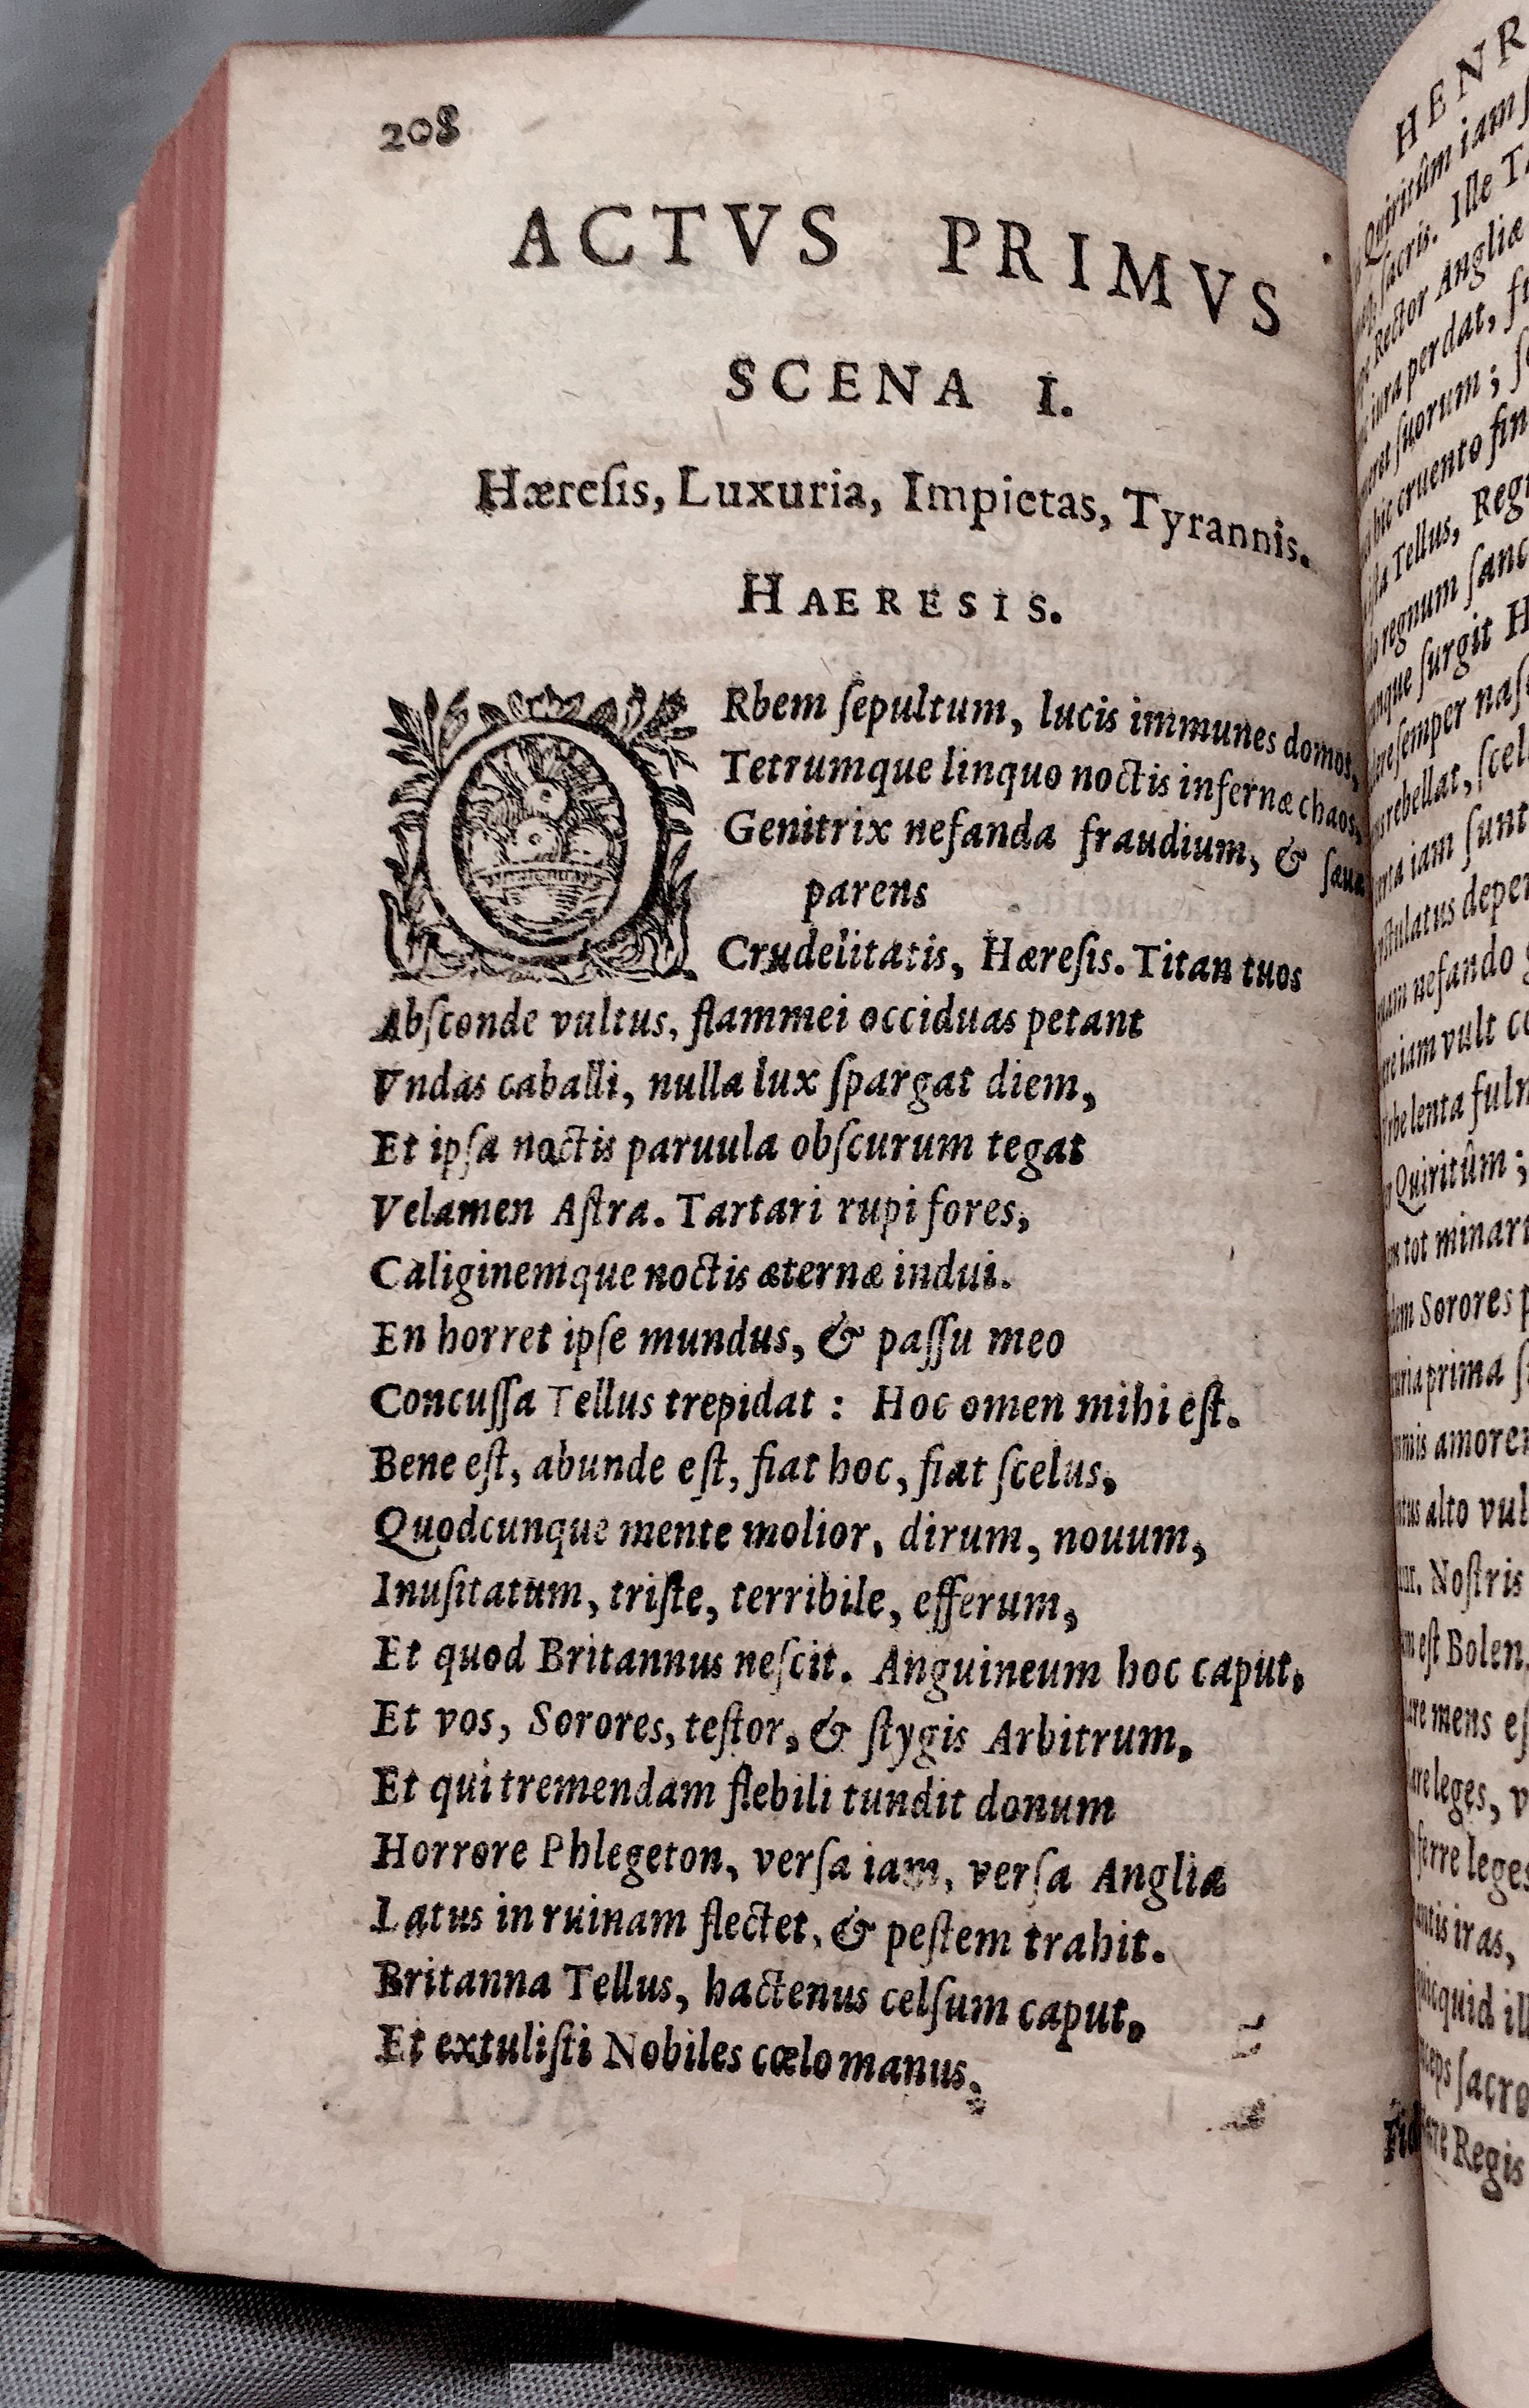 208
ACTVS PRIMVS
SCENA I.
Hæreſis, Luxuria, Impietas, Tyrannis.
HAERESIS.
ORbem ſepultum, lucis immunes domos,
Tetrumque linquo noctis infernæ chaos,
Genitrix nefanda fraudium, & ſæua
parens
Crudelitatis, Hæreſis. Titan tuos
Abſconde vultus, flammei occiduas petant
Vndas caballi, nulla lux ſpargat diem,
Et ipſa noctis paruula obſcurum tegat
Velamen Aſtra. Tartari rupi fores,
Caliginemque noctis æternæ indui.
En horret ipſe mundus, & paſſu meo
Concuſſa Tellus trepidat : Hoc omen mihi eſt.
Bene eſt, abunde eſt, fiat hoc, fiat ſcelus,
Quodcunque mente molior, dirum, nouum,
Inuſitatum, triſte, terribile, efferum,
Et quod Britannus neſcit. Anguineum hoc caput,
Et vos, Sorores, teſtor, & ſtygis Arbitrum,
Et qui tremendam flebili tundit donum
Horrore Phlegeton, verſa iam, verſa Angliæ
Latus in ruinam flectet, & peſtem trahit.
Britanna Tellus, hactenus celſum caput,
Et extuliſti Nobiles cœlo manus,
HENR
Quiritûm iam
ſacris. Ille
Rector Angliæ
iura perdat,
ſuorum;
hic cruento
Tellus,
regnum
ſurgit
ſemper
rebellat,
iam ſunt
nefando
iam vult
lenta
Quiritûm;
tot minari
Sorores
prima
alto
Noſtris
eſt Bolen
mens
leges,
ferre leges
iras,
Regis